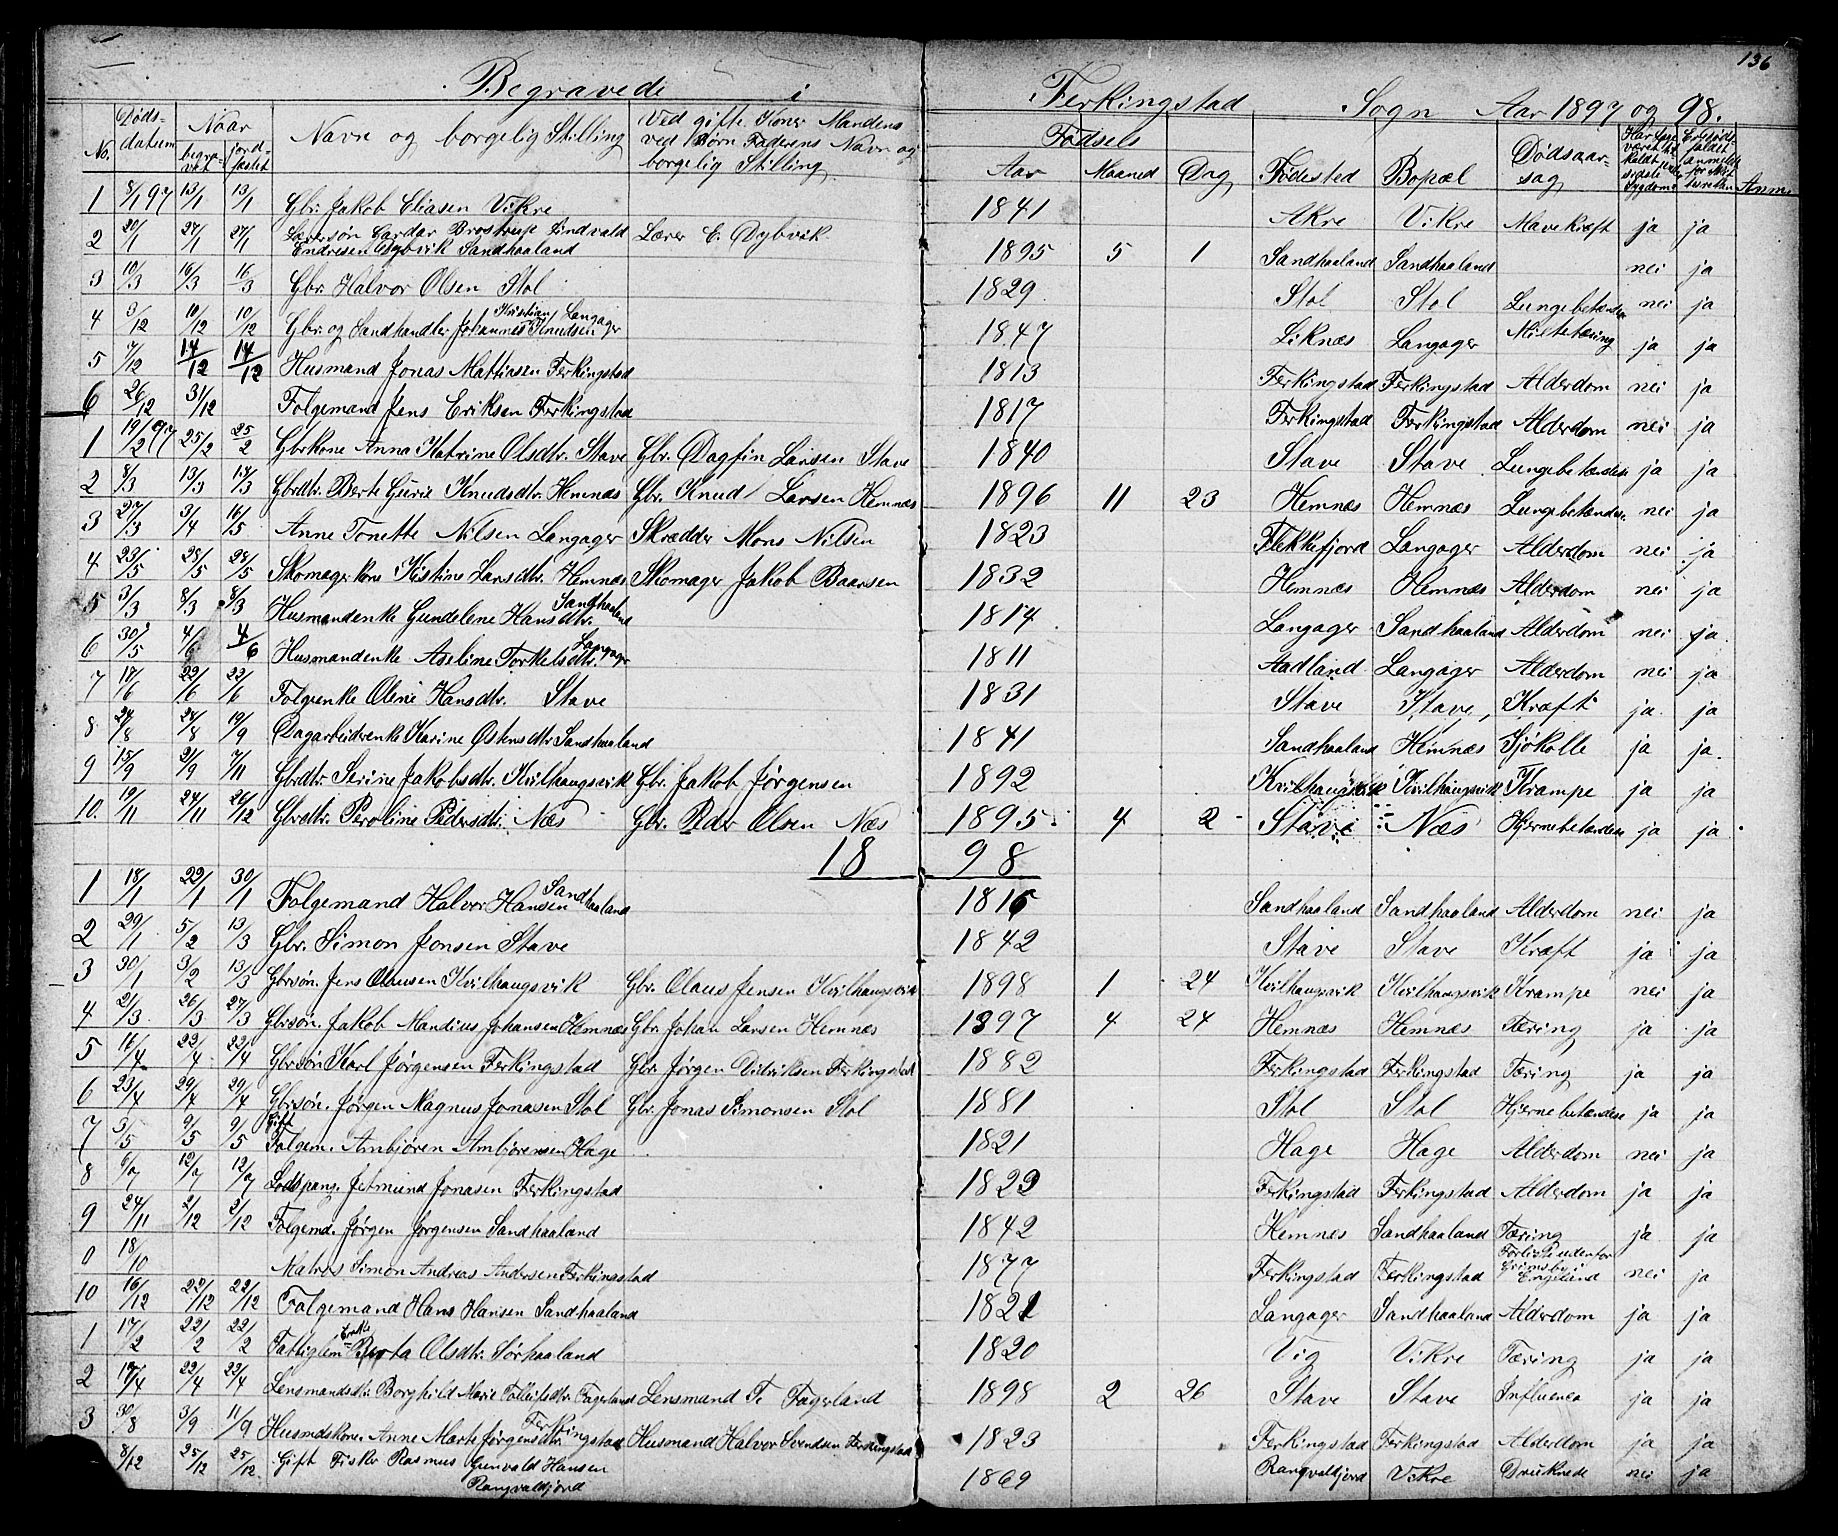 136
Begravede i Ferkingstad Sogn Aar 1897 og 98.
No. Døds-datum Naar begra-vet jord-fæstet Navn og borgelig Stilling Ved gifte Koner Mandens ved Børn Faderens Navn og borgelig Stilling Fødsels Aar Maaned Dag Fødested Bopæl Dødsaar-sag Anm
1 8/1 97 13/1 13/1 Gbr. Jakob Eliasen Vikre 1841 Akre Vikre Mavekræft ja ja
2 20/1 27/1 27/1 Lærersøn Gardar Brostrup Lindvald Endresen Dybvik Sandhaaland Lærer E. Dybvik 1895 5 1 Sandhaaland Sandhaaland nei ja
3 10/3 16/3 16/3 Gbr. Halvor Olsen Stol 1829 Stol Stol Lungebetændse nei ja
4 3/12 10/12 10/12 Gbr. og Landhandler Johannes Kristian Knudsen Langager 1847 Liknæs Langager Miltetæring ja ja
5 7/12 14/12 14/12 Husmand Jonas Mattiasen Ferkingstad 1813 Ferkingstad Ferkingstad Alderdom nei ja
6 26/12 31/12 Folgemand Jens Eriksen Ferkingstad 1817 Ferkingstad Ferkingstad Alderdom nei ja
1 19/2 97 25/2 25/2 Gbrkone Anna Katrine Olsdtr. Stave Gbr. Dagfin Larsen Stave 1840 Stave Stave Lungebetændse ja ja
2 8/3 13/3 13/3 Gbrdtr. Berte Gurie Knudsdtr. Hemnæs Gbr. Knud Larsen Hemnæs 1896 11 23 Hemnæs Hemnæs Lungebetændse nei ja
3 27/3 3/4 16/5 Anne Tonette Nilsen Langager Skrædder Mons Nilsen 1823 Flekkefjord Langager Alderdom nei ja
4 23/5 28/5 28/5 Skomagerkone Kistine Larsdtr. Hemnæs Skomager Jakob Baarsen 1832 Hemnæs Hemnæs Alderdom nei ja
5 3/3 8/3 8/3 Husmandenke Gundelene Hansdtr. Sandhaaland 1814 Langager Sandhaaland Alderdom nei ja
6 30/5 4/6 4/6 Husmandenke Aseline Torkelsdtr. Langager 1811 Aadland Langager Alderdom nei ja
7 17/6 22/6 22/6 Folgenke Oline Hansdtr. Stave 1831 Stave Stave, Kræft ja ja
8 24/8 19/9 Dagarbeiderenke Karine Østensdtr Sandhaaland 1841 Sandhaaland Hemnæs ja ja.
9 15/9 21/9 7/11 Gbrdtr. Serine Jakobsdtr. Kvilhaugsvik Gbr. Jakob Jørgensen 1892 Kvilhaugsvik Kvilhaugsvik Krampe ja ja
10. 19/11 24/11 26/12 Gbrdtr. Peroline Pedersdtr. Næs Gbr. Peder Olsen Næs 1895 4 2 Stave Næs Hjernebetændse ja ja
1898
1 18/1 22/1 30/1 Folgemand Halvor Hansen Sandhaaland 1815 Sandhaaland Sandhaaland Alderdom nei ja
2 29/1 5/2 13/3 Gbr. Simon Jonsen Stave 1842 Stave Stave Kræft ja ja
3 30/1 3/2 13/3 Gbrsøn. Jens Olausen Kvilhaugsvik Gbr. Olaus Jensen Kvilhaugsvik 1898 1 24 Kvilhaugsvik Kvilhaugsvik Krampe nei ja
4 21/3 26/3 27/3 Gbrsøn. Jakob Mandius Johansen Hemnæs Gbr. Johan Larsen Hemnæs 1897 4 24 Hemnæs Hemnæs Tæring ja ja
5 16/4 22/4 22/4 Gbrsøn Karl Jørgensen Ferkingstad Gbr. Jørgen Didriksen Ferkingstad 1882 Ferkingstad Ferkingstad Tæring ja ja
6 23/4 29/4 29/4 Gbrsøn. Jørgen Magnus Jonasen Stol Gbr. Jonas Simonsen Stol 1881 Stol Stol Hjernebetændse ja ja
7 3/5 9/5 9/5 Gift Folgem. Ambjøren Ambjørensen Hage 1821 Hage Hage Alderdom nei ja
8 6/7 12/7 12/7 Lodspang. Jetmund Jonasen Ferkingstad Ferkingstad Ferkingstad Alderdom ja ja
9 24/11 2/12 2/12 Folgemd. Jørgen Jørgensen Sandhaaland 1842 Hemnes Sandhaaland Tæring ja ja
0 18/10 Matros Simon Andreas Andersen Ferkingstad 1877 Ferkingstad Ferkingstad Forlist udenfor Grimsby i England nei ja
10 16/12 22/12 22/12 Folgemand Hans Hansen Sandhaaland 1821 Langager Sandhaaland Alderdom ja ja
1 17/2 22/2 22/2 Fattiglem Enke Berta Olsdtr. Sørhaaland 1820 Vig Vikre Tæring ja ja
2 17/4 22/4 22/4 Lensmandsdtr. Borghild Marie Tolleifsdtr. Fagerland Lensmand T. Fagerland 1898 2 26 Stave Stave Influensa ja ja
3 30/8 3/9 11/9 Husmdskone. Anne Marte Jørgensdtr. Ferkingstad Husmand Halvor Svendsen Ferkingstad 1823 Ferkingstad Ferkingstad Alderdom ja ja
8/12 25/12 25/12. Gift Fisker Rasmus Gunvald Hansen Rangvaldjord 1869 Rangvaldjord Vikre Druknede nei ja